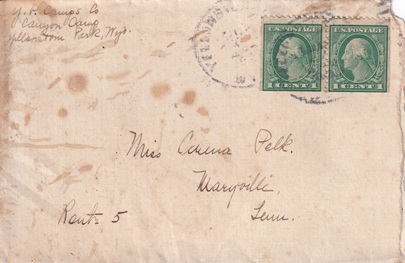 Y.P. Camps Co
Canyon Camp
Yellowstone Park, Wyo.
U.S. POSTAGE
U.S. POSTAGE
1 CENT 1
1 CENT 1
Miss Corena Pelk.
Maryville,
Route 5
Tenn.